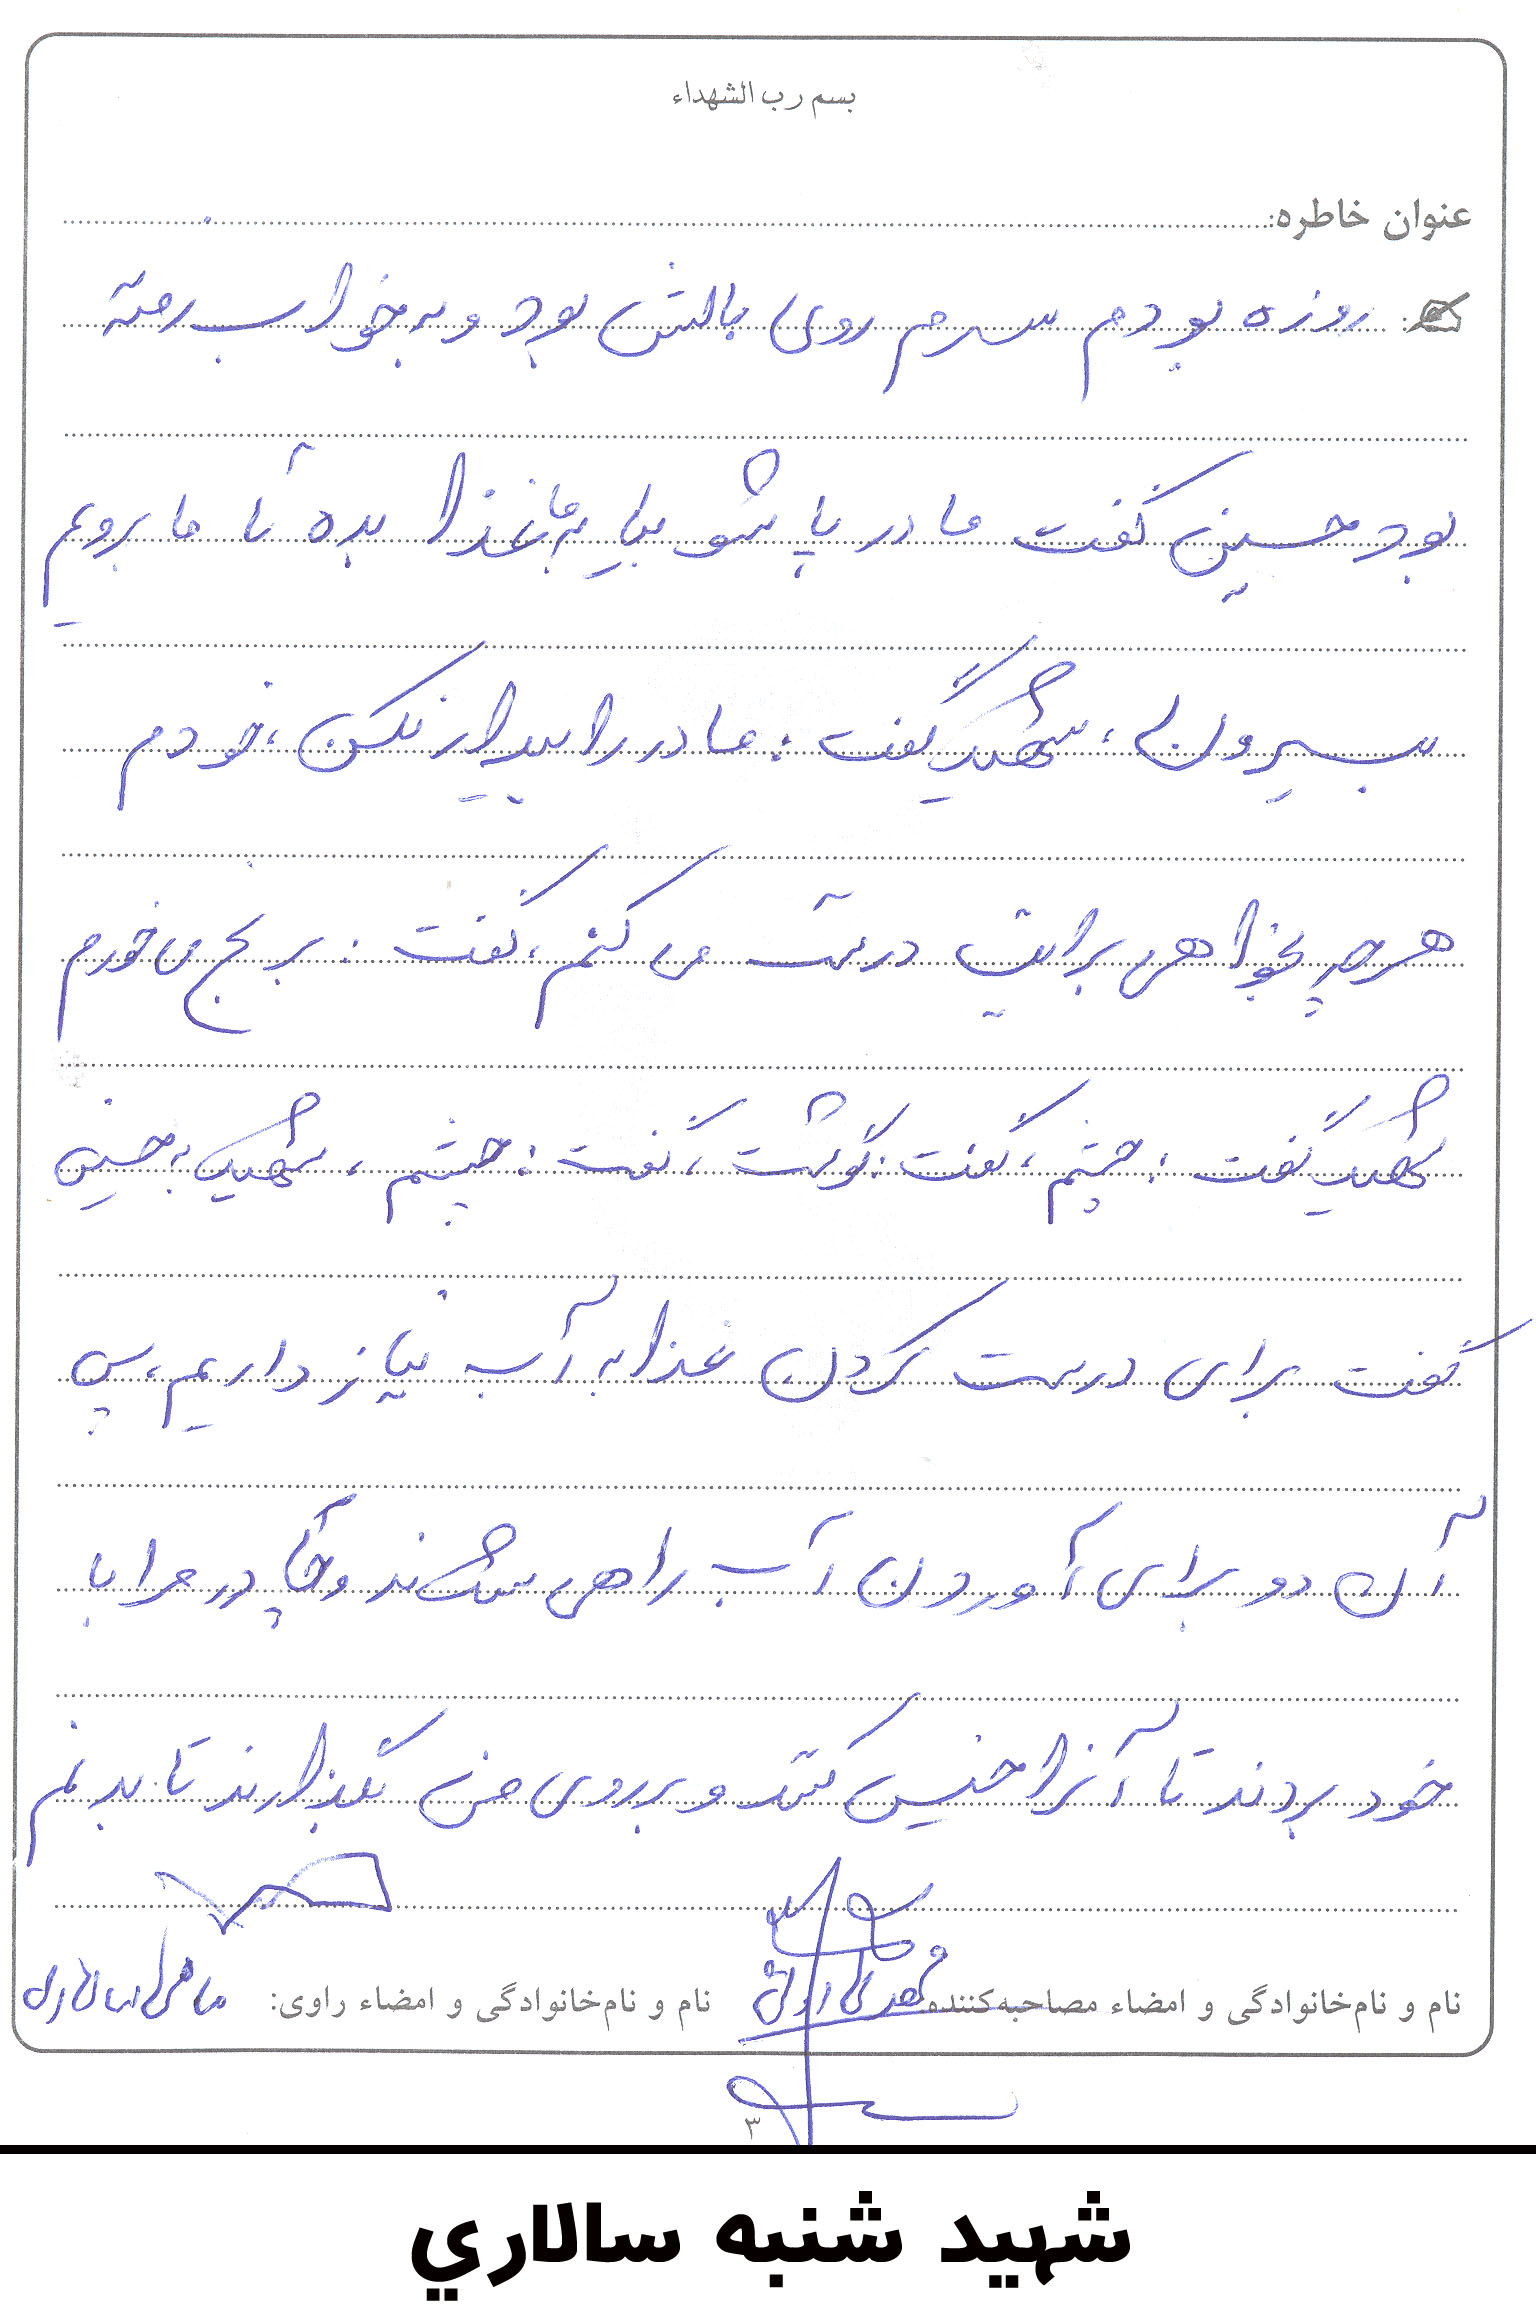 بسم رب الشهداء
عنوان خاطره:
روزه بودم سرم روی بالش بود و به خواب رفته
بود حسین گفت مادر پاشو بیا به ما غذا بده تا ما برویم
بیرون، شهید گفت: مادر را بیدار نکن، خودم
هرچه بخواهی برایت درست می کنم، گفت: برنج می خورم
شهید گفت: چشم، گفت: گوشت، گفت: چشم، شهید به حسین
گفت برای درست کردن غذا به آب نیاز داریم، پس
آن دو برای آوردن آب راهی شدند و پدر مرا با
خود بردند تا آنرا خیس کنند و بر روی من بگذارند تا بدنم
نام و نام‌خانوادگی و امضاء مصاحبه‌کننده: نام و نام‌خانوادگی و امضاء راوی: سالاری
۳
شهيد شنبه سالاري